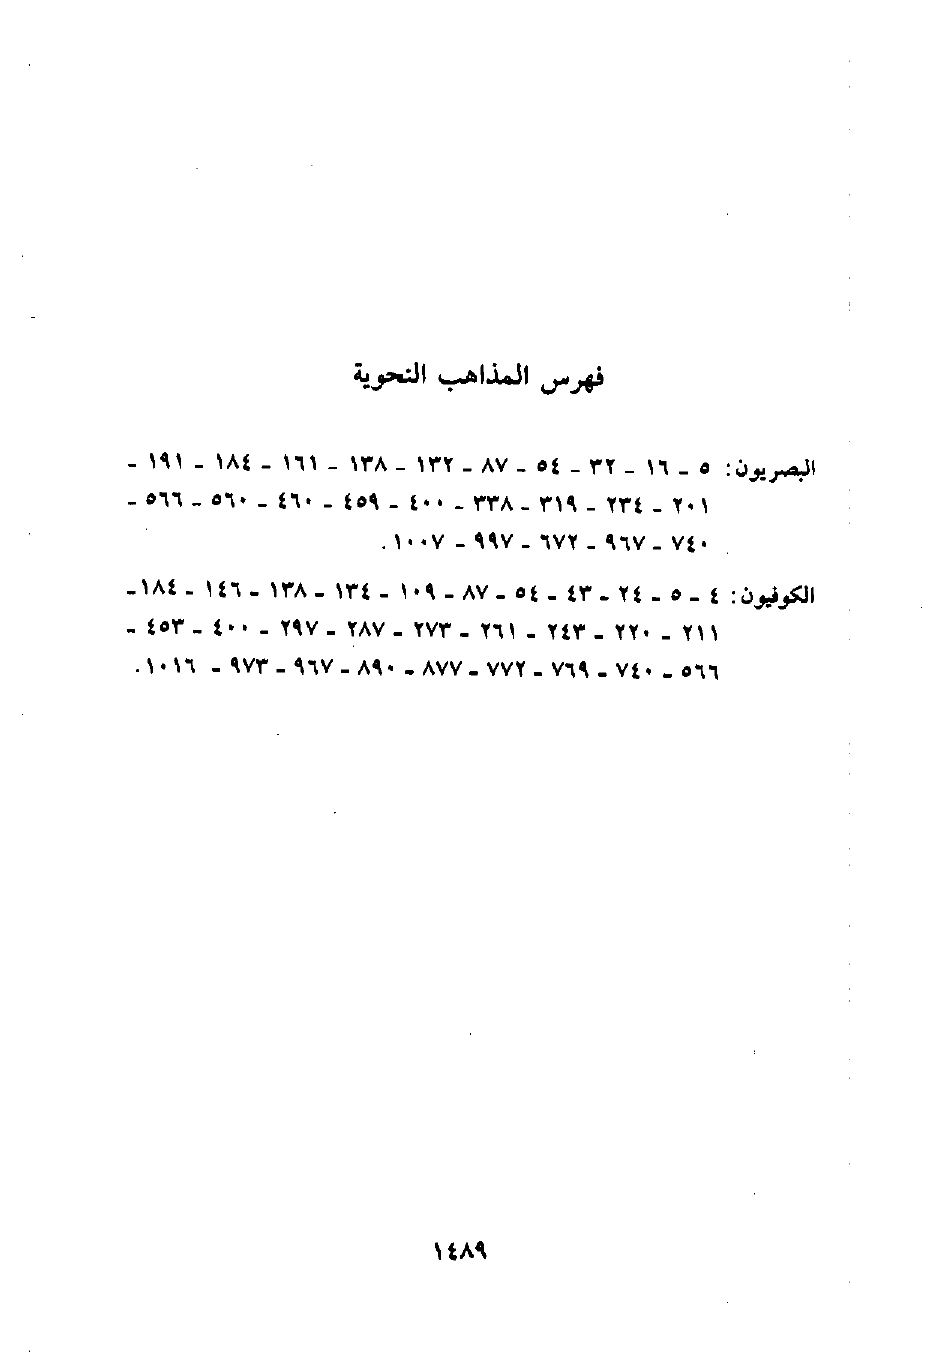 فهرس المذاهب النحوية
البصريون: ٥ - ١٦ - ٣٢ - ٥٤ - ٨٧ - ١٣٢ - ١٣٨ - ١٦١ - ١٨٤ - ١٩١ -
٢٠١ - ٢٣٤ - ٣١٩ - ٣٣٨ - ٤٠٠ - ٤٥٩ - ٤٦٠ - ٥٦٠ - ٥٦٦ -
٧٤٠ - ٩٦٧ - ٦٧٢ - ٩٩٧ - ١٠٠٧.
الكوفيون: ٤ - ٥ - ٢٤ - ٤٣ - ٥٤ - ٨٧ - ١٠٩ - ١٣٤ - ١٣٨ - ١٤٦ - ١٨٤-
٢١١ - ٢٢٠ - ٢٤٣ - ٢٦١ - ٢٧٣ - ٢٨٧ - ٢٩٧ - ٤٠٠ - ٤٥٣ -
٥٦٦ - ٧٤٠ - ٧٦٩ - ٧٧٢ - ٨٧٧ - ٨٩٠ - ٩٦٧ - ٩٧٣ - ١٠١٦.
١٤٨٩